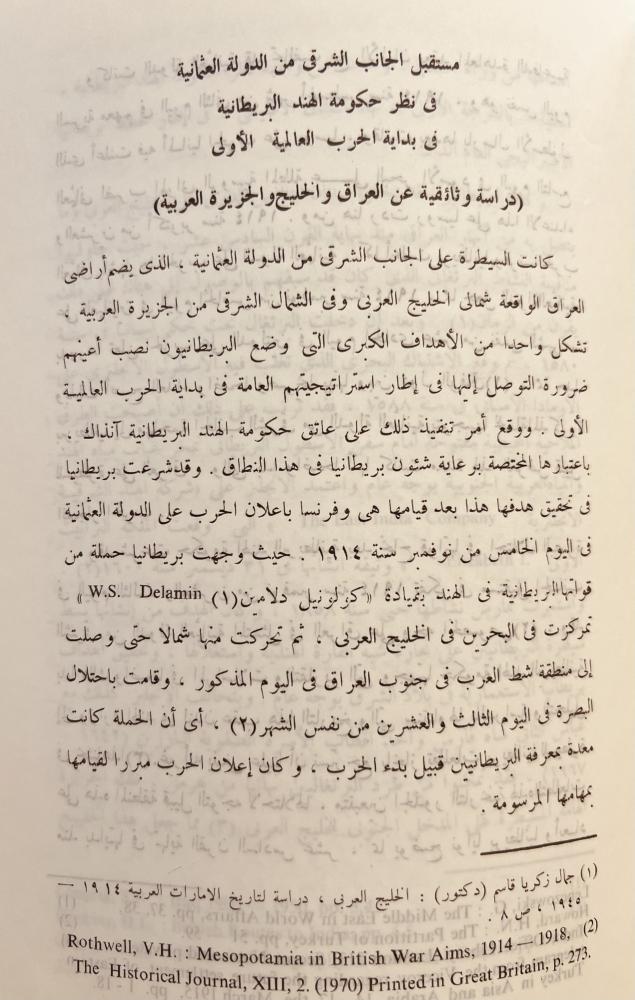 مستقبل الجانب الشرقى من الدولة العثمانية
فى نظر حكومة الهند البريطانية
فى بداية الحرب العالمية الأولى
(دراسة وثائقية عن العراق والخليج والجزيرة العربية)
كانت السيطرة على الجانب الشرقى من الدولة العثمانية ، الذى يضم أراضى
العراق الواقعة شمالى الخليج العربى وفى الشمال الشرقى من الجزيرة العربية ،
تشكل واحدا من الأهداف الكبرى التى وضع البريطانيون نصب أعينهم
ضرورة التوصل إليها فى إطار استراتيجيتهم العامة فى بداية الحرب العالمية
الأولى . ووقع أمر تنفيذ ذلك على عاتق حكومة الهند البريطانية آنذاك ،
باعتبارها المختصة برعاية شئون بريطانيا فى هذا النطاق . وقد شرعت بريطانيا
فى تحقيق هدفها هذا بعد قيامها هى وفرنسا باعلان الحرب على الدولة العثمانية
فى اليوم الخامس من نوفمبر سنة ١٩١٤ . حيث وجهت بريطانيا حملة من
قواتها البريطانية فى الهند بقيادة «كولونيل دلامين(١) W.S. Delamin »
تمركزت فى البحرين فى الخليج العربى ، ثم تحركت منها شمالا حتى وصلت
إلى منطقة شط العرب فى جنوب العراق فى اليوم المذكور ، وقامت باحتلال
البصرة فى اليوم الثالث والعشرين من نفس الشهر(٢) ، أى أن الحملة كانت
معدة بمعرفة البريطانيين قبيل بدء الحرب ، وكان إعلان الحرب مبررا لقيامها
بمهامها المرسومة .
(١) جمال زكريا قاسم (دكتور) : الخليج العربى ، دراسة لتاريخ الامارات العربية ١٩١٤ —
١٩٤٥ ، ص ٨ .
(2) Rothwell, V.H. : Mesopotamia in British War Aims, 1914 — 1918,
The Historical Journal, XIII, 2. (1970) Printed in Great Britain, p. 273.